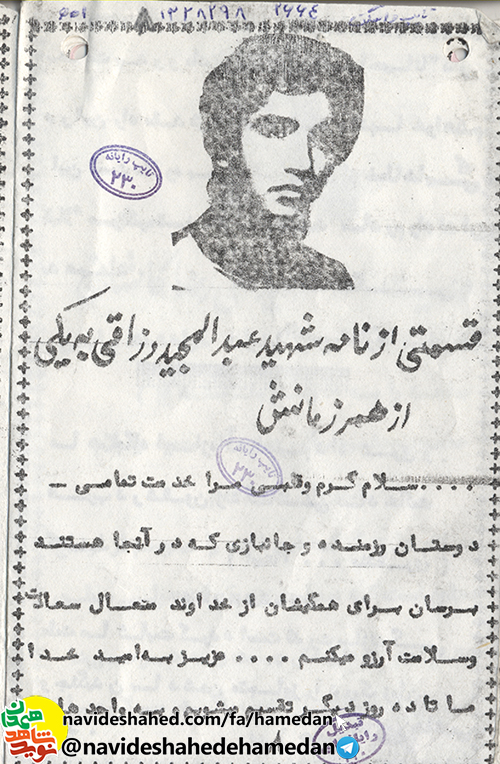 ۱۳۲۸۲۹۸ ۲۶۶۴
تایپ رایانه
۲۳۰
قسمتی از نامه شهید عبدالمجید رزاقی به یکی
از همرزمانش
تایپ رایانه
۲۳۰
.... سلام گرم و قلبی مرا خدمت تمامی -
دوستان رزمنده و جانبازی که در آنجا هستند
برسان برای همگیشان از خداوند متعال سعادت
وسلامت آرزو میکنم .... عزیز به امید خدا
ما تا ده روز دیگر تقسیم میشویم و به واحد
تبدیل
navideshahed.com/fa/hamedan
نوید شاهد
@navideshahedehamedan